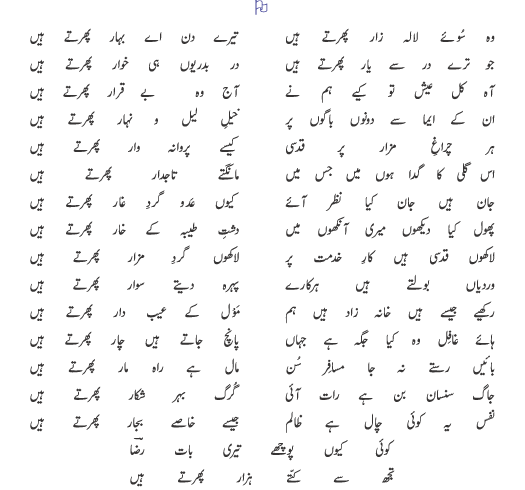 وہ سُوئے لالہ زار پھرتے ہیں تیرے دن اے بہار پھرتے ہیں
جو ترے در سے یار پھرتے ہیں در بدر یوں ہی خوار پھرتے ہیں
آہ کل عیش تو کیے ہم نے آج وہ بے قرار پھرتے ہیں
ان کے ایما سے دونوں باگوں پر خیلِ لیل و نہار پھرتے ہیں
ہر چراغِ مزار پر قدسی کیسے پروانہ وار پھرتے ہیں
اس گلی کا گدا ہوں میں جس میں مانگتے تاجدار پھرتے ہیں
جان ہیں جان کیا نظر آئے کیوں عدو گردِ غار پھرتے ہیں
پھول کیا دیکھوں میری آنکھوں میں دشتِ طیبہ کے خار پھرتے ہیں
لاکھوں قدسی ہیں کارِ خدمت پر لاکھوں گردِ مزار پھرتے ہیں
وردیاں بولتے ہیں ہرکارے پہرہ دیتے سوار پھرتے ہیں
رکھیے جیسے ہیں خانہ زاد ہیں ہم مَوْل کے عیب دار پھرتے ہیں
ہائے غافِل وہ کیا جگہ ہے جہاں پانچ جاتے ہیں چار پھرتے ہیں
بائیں رستے نہ جا مسافِر سُن مال ہے راہ مار پھرتے ہیں
جاگ سنسان بن ہے رات آئی گُرگ بہرِ شکار پھرتے ہیں
نفس یہ کوئی چال ہے ظالم جیسے خاصے بجار پھرتے ہیں
کوئی کیوں پوچھے تیری بات رضاؔ
تجھ سے کتّے ہزار پھرتے ہیں